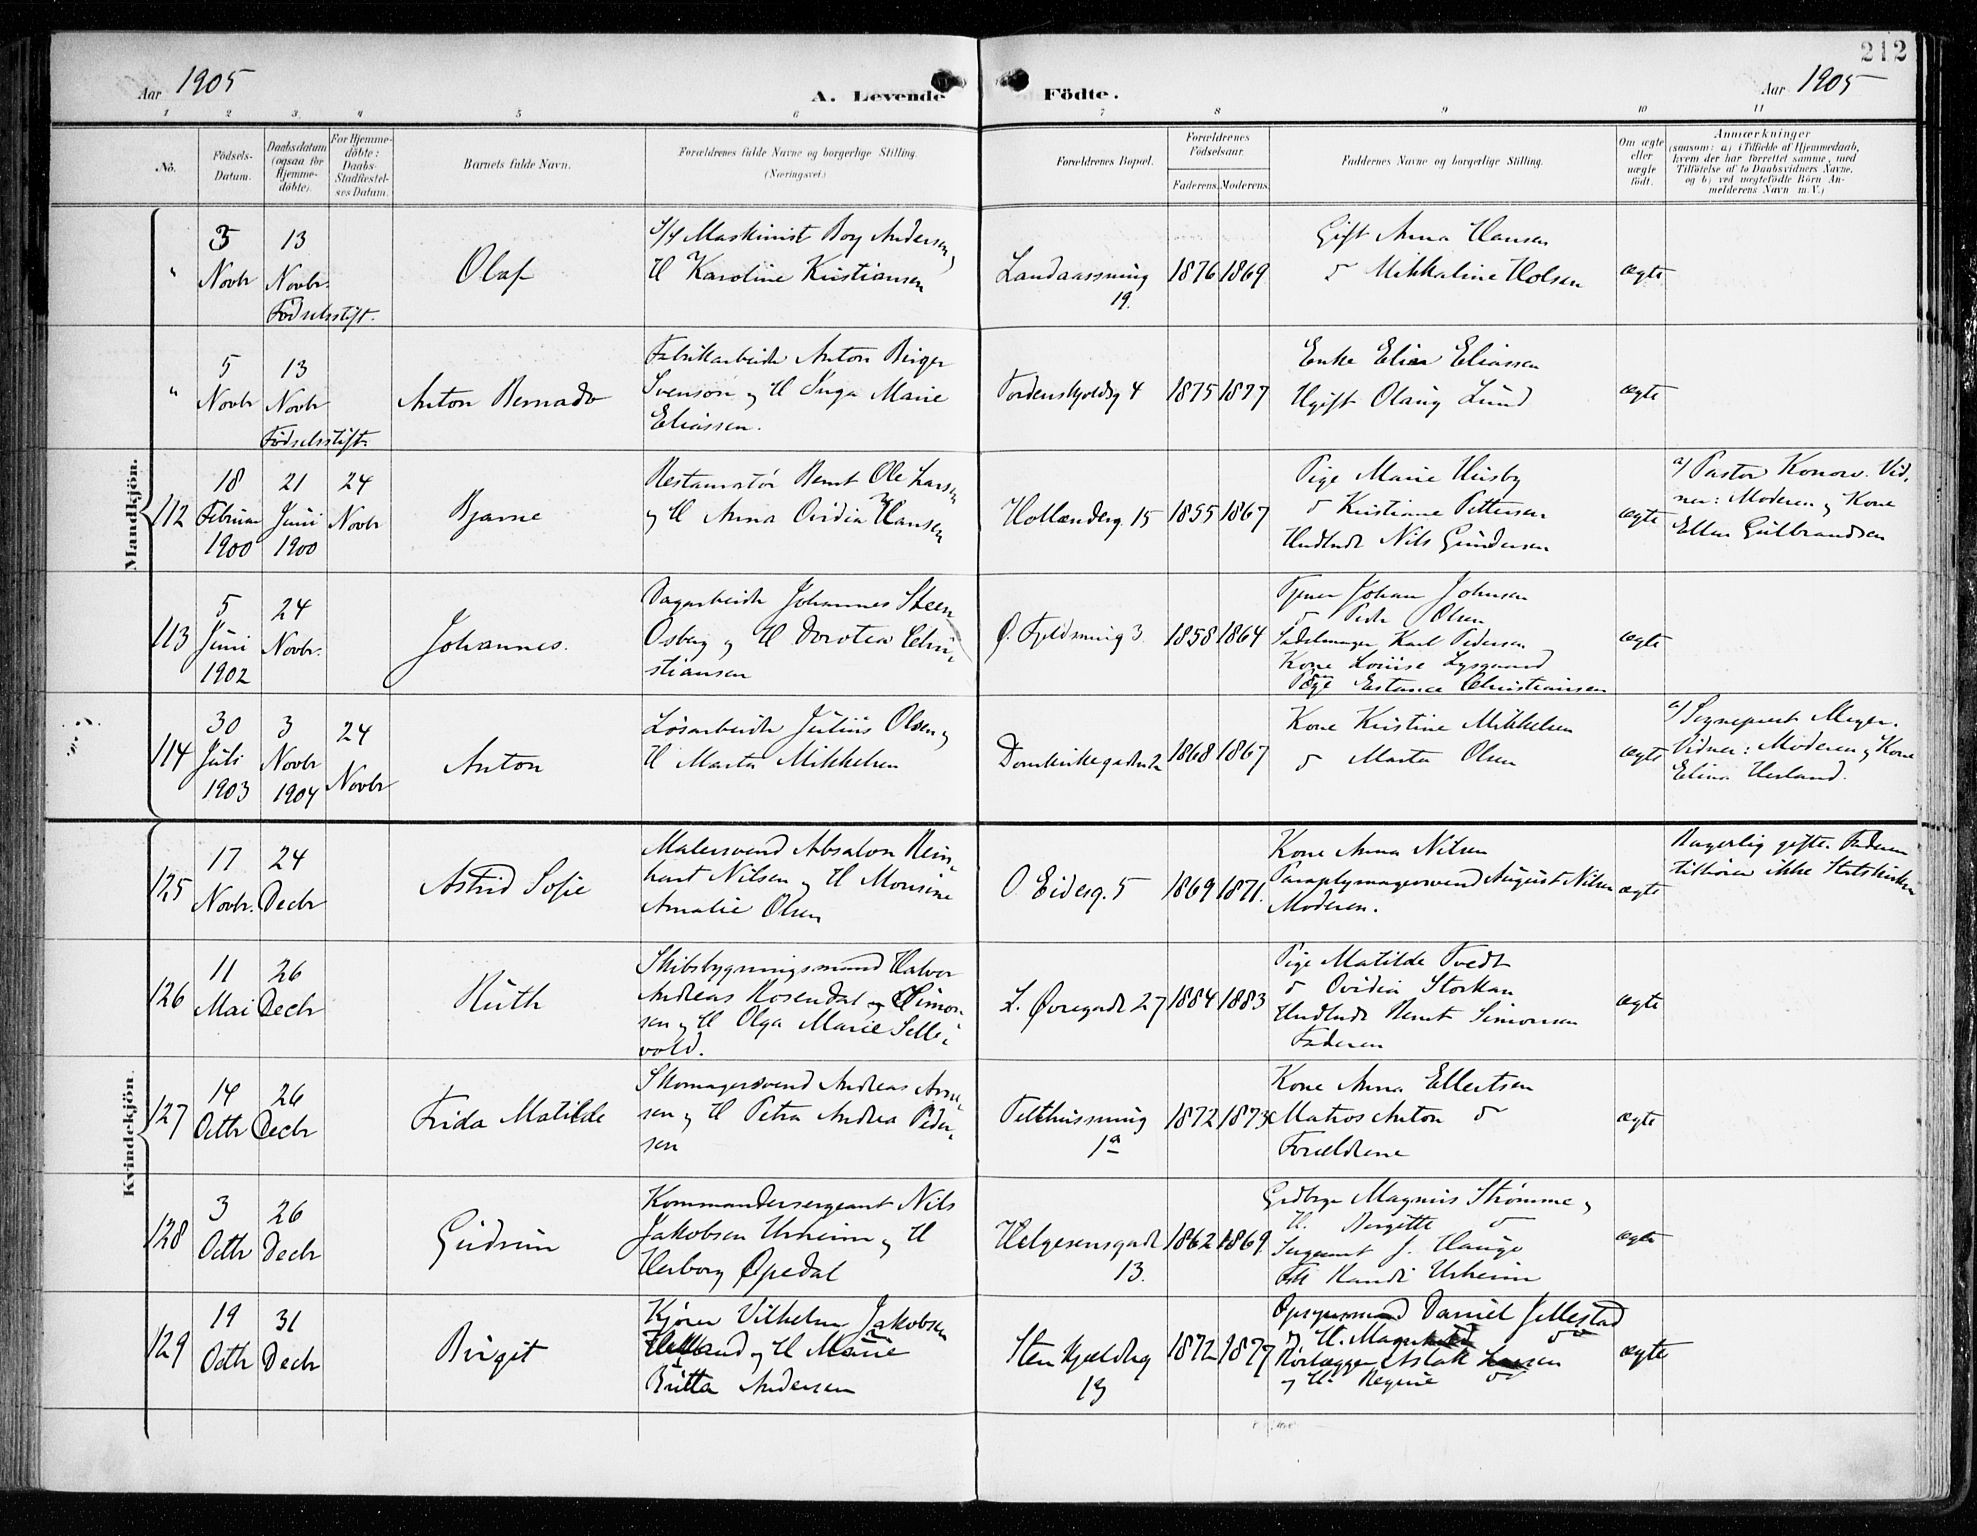 212
Aar 1905
A. Levende Födte.
Aar 1905
1 2 3 4 5 6 7 8 9 10 11
No.
Födsels-Datum.
Daabsdatum (ogsaa for Hjemme-döbte).
For Hjemme-döbte: Daabs-Stadfæstel-ses Datum.
Barnets fulde Navn.
Forældrenes fulde Navne og borgerlige Stilling.
(Næringsvei)
Forældrenes Bopæl.
Forældrenes Födselsaar.
Faderens. Moderens.
Faddernes Navne og borgerlige Stilling.
Om ægte eller uægte födt.
Anmærkninger
(saasom: a) i Tilfælde af Hjemmedaab, hvem der har forrettet samme, med Tilföielse af to Daabsvidners Navne, og b) ved uægtefödte Börn An-melderens Navn m. V.)
Mandkjön.
" 5 Novbr 13 Novbr. Fødselsstift.
Olaf
S/s Maskinist Boy Andersen,
H Karoline Kristiansen
Landaassmug 19.
1876 1869
Gift Anna Hansen
d Mikkaline Holsen
ægte
" 5 Novbr 13 Novbr Fødselsstift.
Anton Bernado
Fabrikarbeid. Anton Birger
Svenson og H Inga Marie
Eliassen.
Tordenskjoldsg 4
1875 1877
Enke Elisa Eliassen
Ugift Olaug Lund
ægte
112 18 Februar 1900 21 Juni 1900 24 Novbr
Bjarne
Restauratør Bernt Ole Larsen
og H Anna Ovidia Hansen
Hollænderg. 15
1855 1867
Pige Marie Husby
d Kristiane Pettersen
Hndlnde Nils Gundersen
ægte
a) Pastor Konow. Vid-
ner: Moderen og Kone
Ellen Gulbrandsen
113 5 Juni 1902 24 Novbr.
Johannes.
Dagarbeid. Johannes Steen
Osberg og H Dorotea Chri-
stiansen
Ø. Fjeldsmug 3.
1858 1864
Tjener Johan Johnsen
d Peder Olsen
Sadelmager Karl Pedersen og
Kone Louise Lysgaard
Pige Constance Christiansen
ægte
114 30 Juli 1903 3 Novbr 1904 24 Novbr
Anton
Løsarbeid. Julius Olsen og
H Marta Mikkelsen
Domkirkegaden 2
1868 1867
Kone Kristine Mikkelsen
d Marta Olsen
ægte
a) Sognepræst Meyer.
Vidner: Moderen og Kone
Elina Herland.
Kvindekjön.
125 17 Novbr. 24 Decbr
Astrid Sofie
Malersvend Absalon Rein-
hart Nilsen og H Monsine
Amalie Olsen
O. Eidesg. 5
1869 1871.
Kone Anna Nilsen
Paraplymagersvend August Nilsen
Moderen.
ægte
Borgerlig gifte. Faderen
tilhører ikke Statskirken
126 11 Mai 26 Decbr
Ruth
Skibsbygningsmand Halvor
Andreas Rosendal Simon-
sen og H Olga Marie Selle-
vold.
L. Øvregade 27
1884 1883
Pige Matilde Tvedt
d Ovidia Storkan
Hndlnde Bernt Simonsen
Faderen
ægte
127 14 Octbr 26 Decbr
Frida Matilde
Skomagersvend Andreas Arne-
sen og H Petra Andrea Peder-
sen
Telthussmug 1a
1872 1873
Kone Anna Ellertsen
Matros Anton d
Forældrene
ægte
128 3 Octbr 26 Decbr
Gudrun
Kommandersergeant Nils
Jakobsen Urheim og H
Herborg Opedal
Helgesensgade 13.
1862 1869
Grdbrgr Magnus Strømme og
H. Birgitte d
Sergeant J. Hauge
Frk Randi Urheim
ægte
129 19 Octbr 31 Decbr
Birgit
Kjører Vilhelm Jakobsen
Helland og H Marie
Britta Andersen
Stenkjelderg 13
1872 1877
Opsynsmand Daniel Jellestad
og H. d
Rørlægger Aslak Larsen
og H. Regine d
ægte